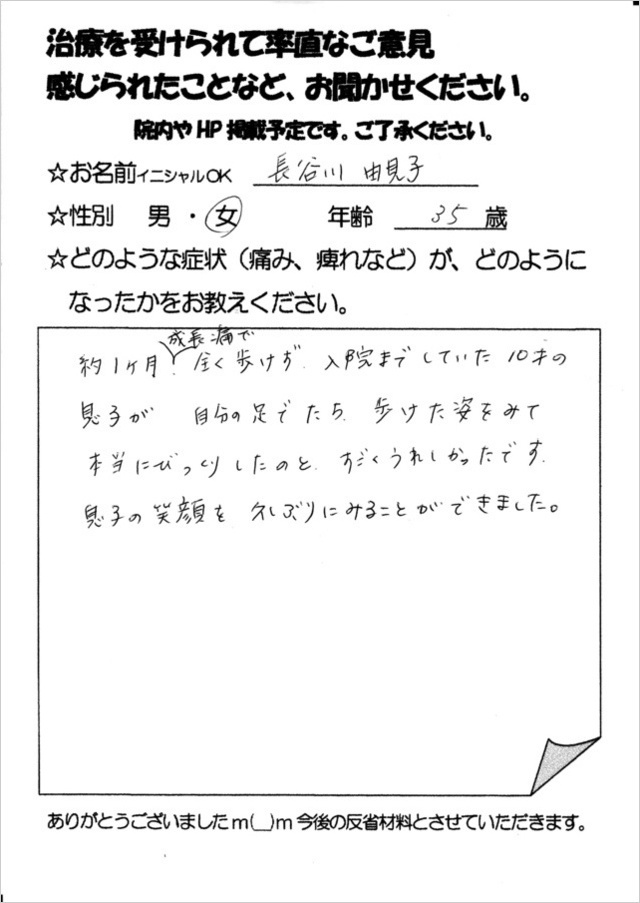 治療を受けられて率直なご意見
感じられたことなど、お聞かせください。
院内やHP掲載予定です。ご了承ください。
☆お名前イニシャルOK 長谷川 由見子
☆性別 男 ・ 女 年齢 35 歳
☆どのような症状（痛み、痺れなど）が、どのように
なったかをお教えください。
成長痛で
約1ヶ月、全く歩けず、入院までしていた10才の
息子が 自分の足でたち、歩けた姿をみて
本当にびっくりしたのと、すごくうれしかったです。
息子の笑顔を久しぶりにみることができました。
ありがとうございましたm(__)m今後の反省材料とさせていただきます。